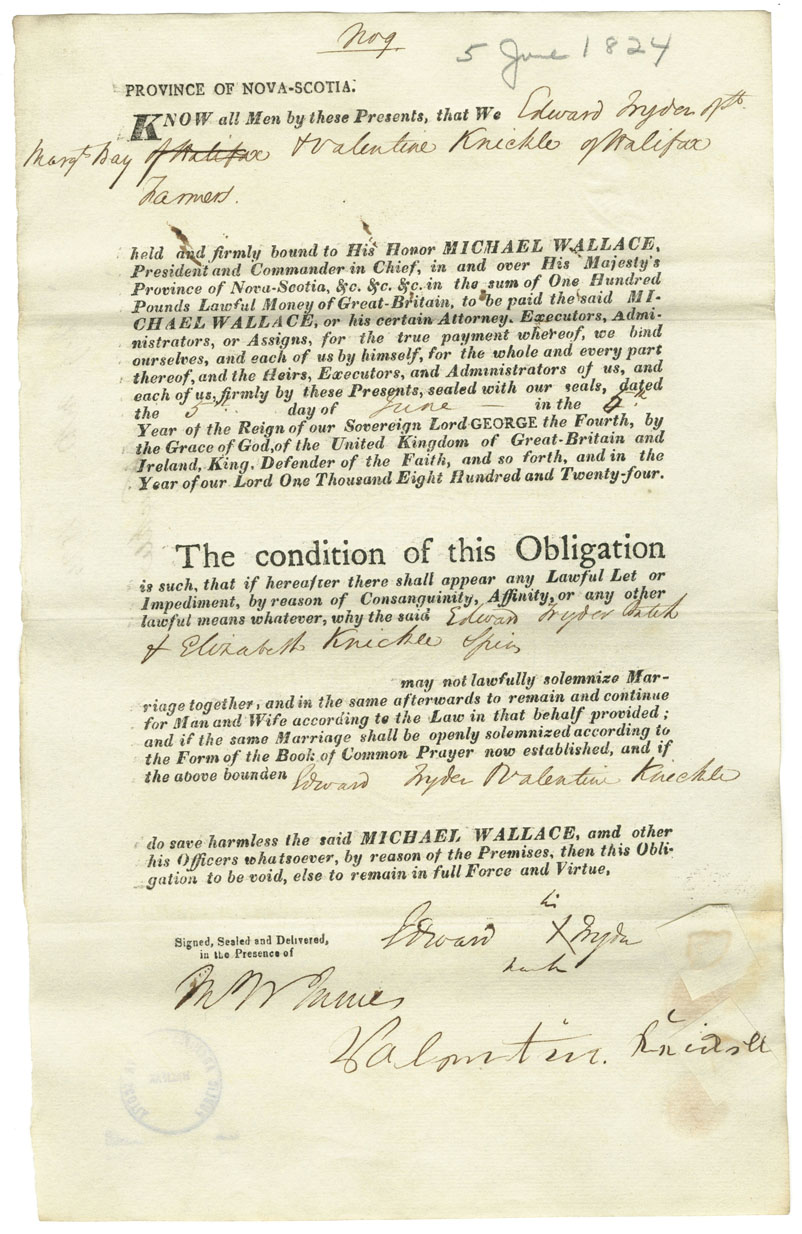 No 9.
5 June 1824
PROVINCE OF NOVA-SCOTIA.
KNOW all Men by these Presents, that We Edward Fryder of St
Margts Bay of Halifax & Valentine Knickle of Halifax
Farmers.
held and firmly bound to His Honor MICHAEL WALLACE,
President and Commander in Chief, in and over His Majesty's
Province of Nova-Scotia, &c. &c. &c. in the sum of One Hundred
Pounds Lawful Money of Great-Britain, to be paid the said MI-
CHAEL WALLACE, or his certain Attorney, Executors, Admi-
nistrators, or Assigns, for the true payment whereof, we bind
ourselves, and each of us by himself, for the whole and every part
thereof, and the Heirs, Executors, and Administrators of us, and
each of us, firmly by these Presents, sealed with our seals, dated
the 5th day of June in the
Year of the Reign of our Sovereign Lord GEORGE the Fourth, by
the Grace of God, of the United Kingdom of Great-Britain and
Ireland, King, Defender of the Faith, and so forth, and in the
Year of our Lord One Thousand Eight Hundred and Twenty-four.
The condition of this Obligation
is such, that if hereafter there shall appear any Lawful Let or
Impediment, by reason of Consanguinity, Affinity, or any other
lawful means whatever, why the said Edward Fryder Batch
& Elizabeth Knickle Spin
may not lawfully solemnize Mar-
riage together, and in the same afterwards to remain and continue
for Man and Wife according to the Law in that behalf provided;
and if the same Marriage shall be openly solemnized according to
the Form of the Book of Common Prayer now established, and if
the above bounden Edward Fryder & Valentine Knickle
do save harmless the said MICHAEL WALLACE, amd other
his Officers whatsoever, by reason of the Premises, then this Obli-
gation to be void, else to remain in full Force and Virtue,
his
Signed, Sealed and Delivered,
in the Presence of
Edward X Fryder
mark
Valentin.